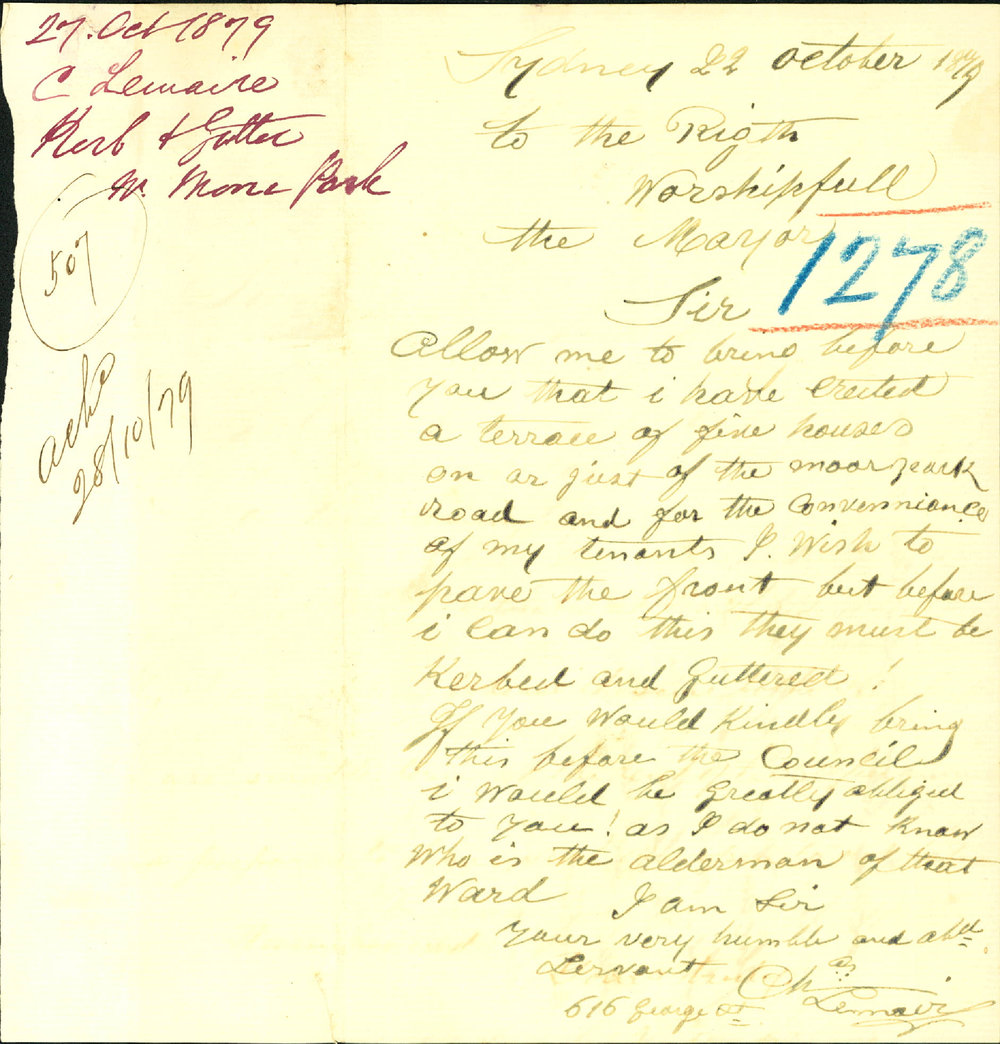 27. Oct 1879
C Lemaire
Kerb & Gutter
N. Moore Park
507
ackd
28/10/79
Sydney 22 October 1879
to the Rigth
Worshipfull
the Mayor
1278
Sir
Allow me to bring before
you that i have Erected
a terrace of five houses
on or just of the moor park
road and for the Convenniance
of my tenants I. Wish to
pave the front but before
i Can do this they must be
Kerbed and Guttered !
If you Would Kindly bring
this before the Council
i Would be Greatly obliged
to you! as I do not Know
Who is the alderman of that
Ward I am Sir
Your very humble and obdt
Servant Chas
Lemair
616 George st